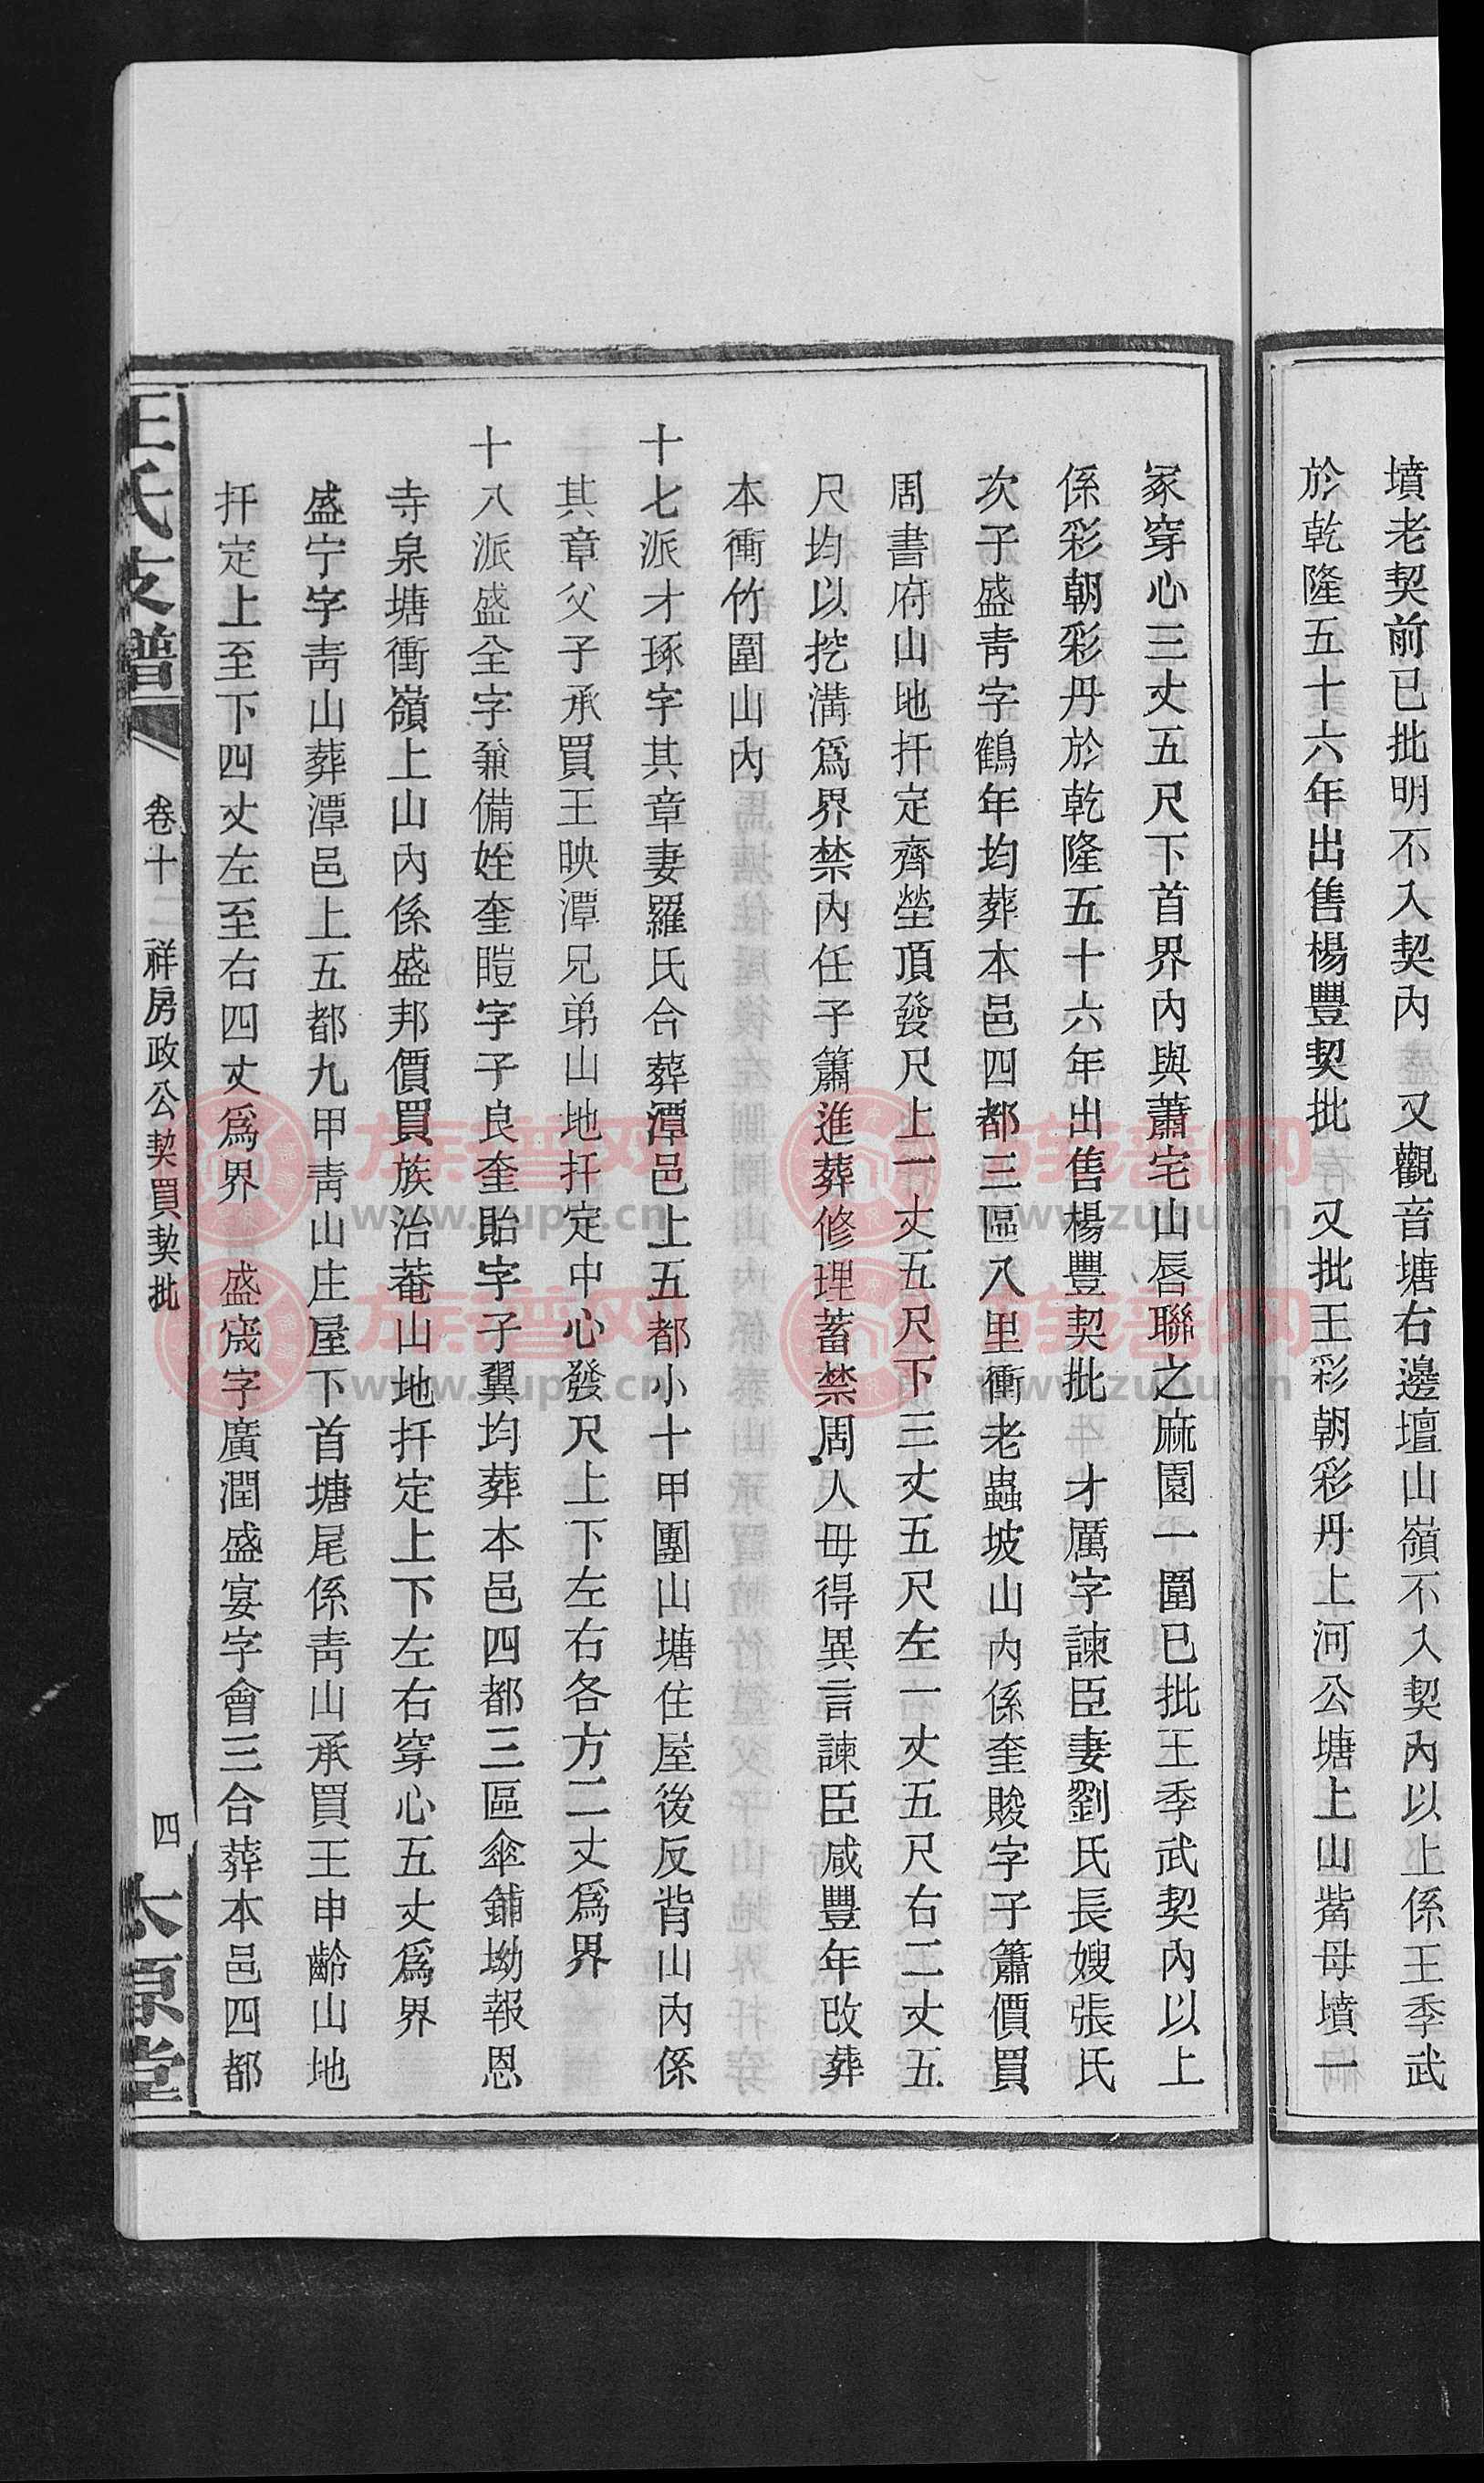 墳老契前已批明不入契內　又觀音塘右邊壇山嶺不入契內以上係王季武
於乾隆五十六年出售楊豐契批　又批王彩朝彩丹上河公塘上山觜母墳一
冢穿心三丈五尺下首界內與蕭宅山唇聯之麻園一圍已批王季武契內以上
係彩朝彩丹於乾隆五十六年出售楊豐契批　才厲字諫臣妻劉氏長嫂張氏
次子盛靑字鶴年均葬本邑四都三區八里衝老蟲坡山內係奎賧字子簫價買
周書府山地扦定齊塋頂發尺上一丈五尺下三丈五尺左一丈五尺右二丈五
尺均以挖溝爲界禁內任子簫進葬修理蓄禁周人毋得異言諫臣咸豐年改葬
本衝竹圍山內
十七派才琢字其章妻羅氏合葬潭邑上五都小十甲團山塘住屋後反背山內係
其章父子承買王映潭兄弟山地扦定中心發尺上下左右各方二丈爲界
十八派盛全字兼備姪奎暟字子良奎貽字子翼均葬本邑四都三區傘鋪坳報恩
寺泉塘衝嶺上山內係盛邦價買族治菴山地扦定上下左右穿心五丈爲界
盛宁字靑山葬潭邑上五都九甲靑山庄屋下首塘尾係靑山承買王申齡山地
扦定上至下四丈左至右四丈爲界　盛宬字廣潤盛宴字會三合葬本邑四都
王氏支譜　卷十二祥房政公契買契批　四　太原堂
族谱网
www.zupu.cn
族谱网
www.zupu.cn
族谱网
www.zupu.cn
族谱网
www.zupu.cn